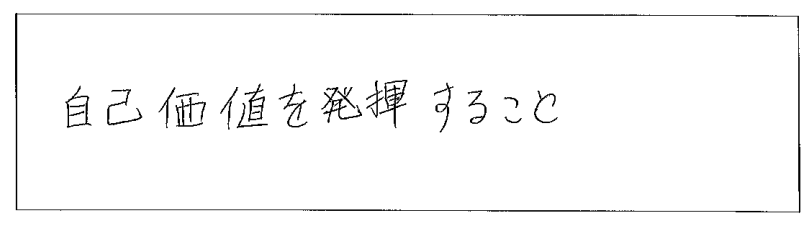 自己価値を発揮すること